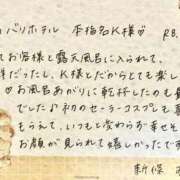 バリホテル 本指名K様♡ R8.
てお客様と露天風呂に入られて、
件だったし、K様とだからとても楽し
♡お風呂あがりに乾杯したのも最
でした♪初のセーラーコスプも喜
もらえて、いつもと変わらず幸せそ
お顔が見られて嬉しかったです
新保